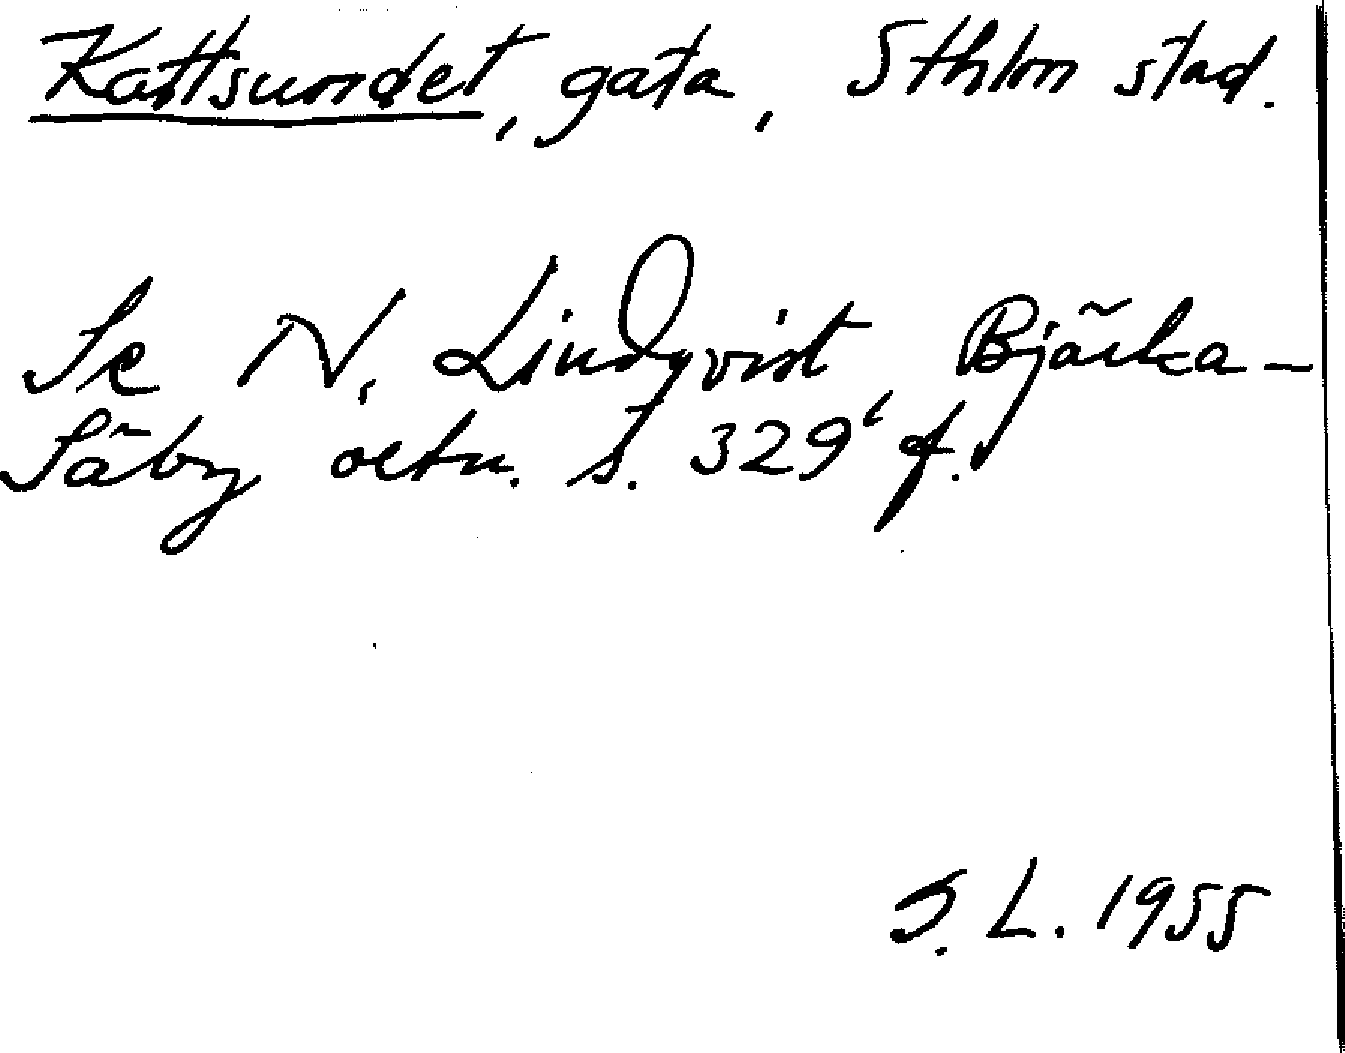 Kattsundet, gata, Sthlm stad.
Se N. Lindqvist, Bjärka-
Säby ortn. s. 329 f.
S. L. 1955